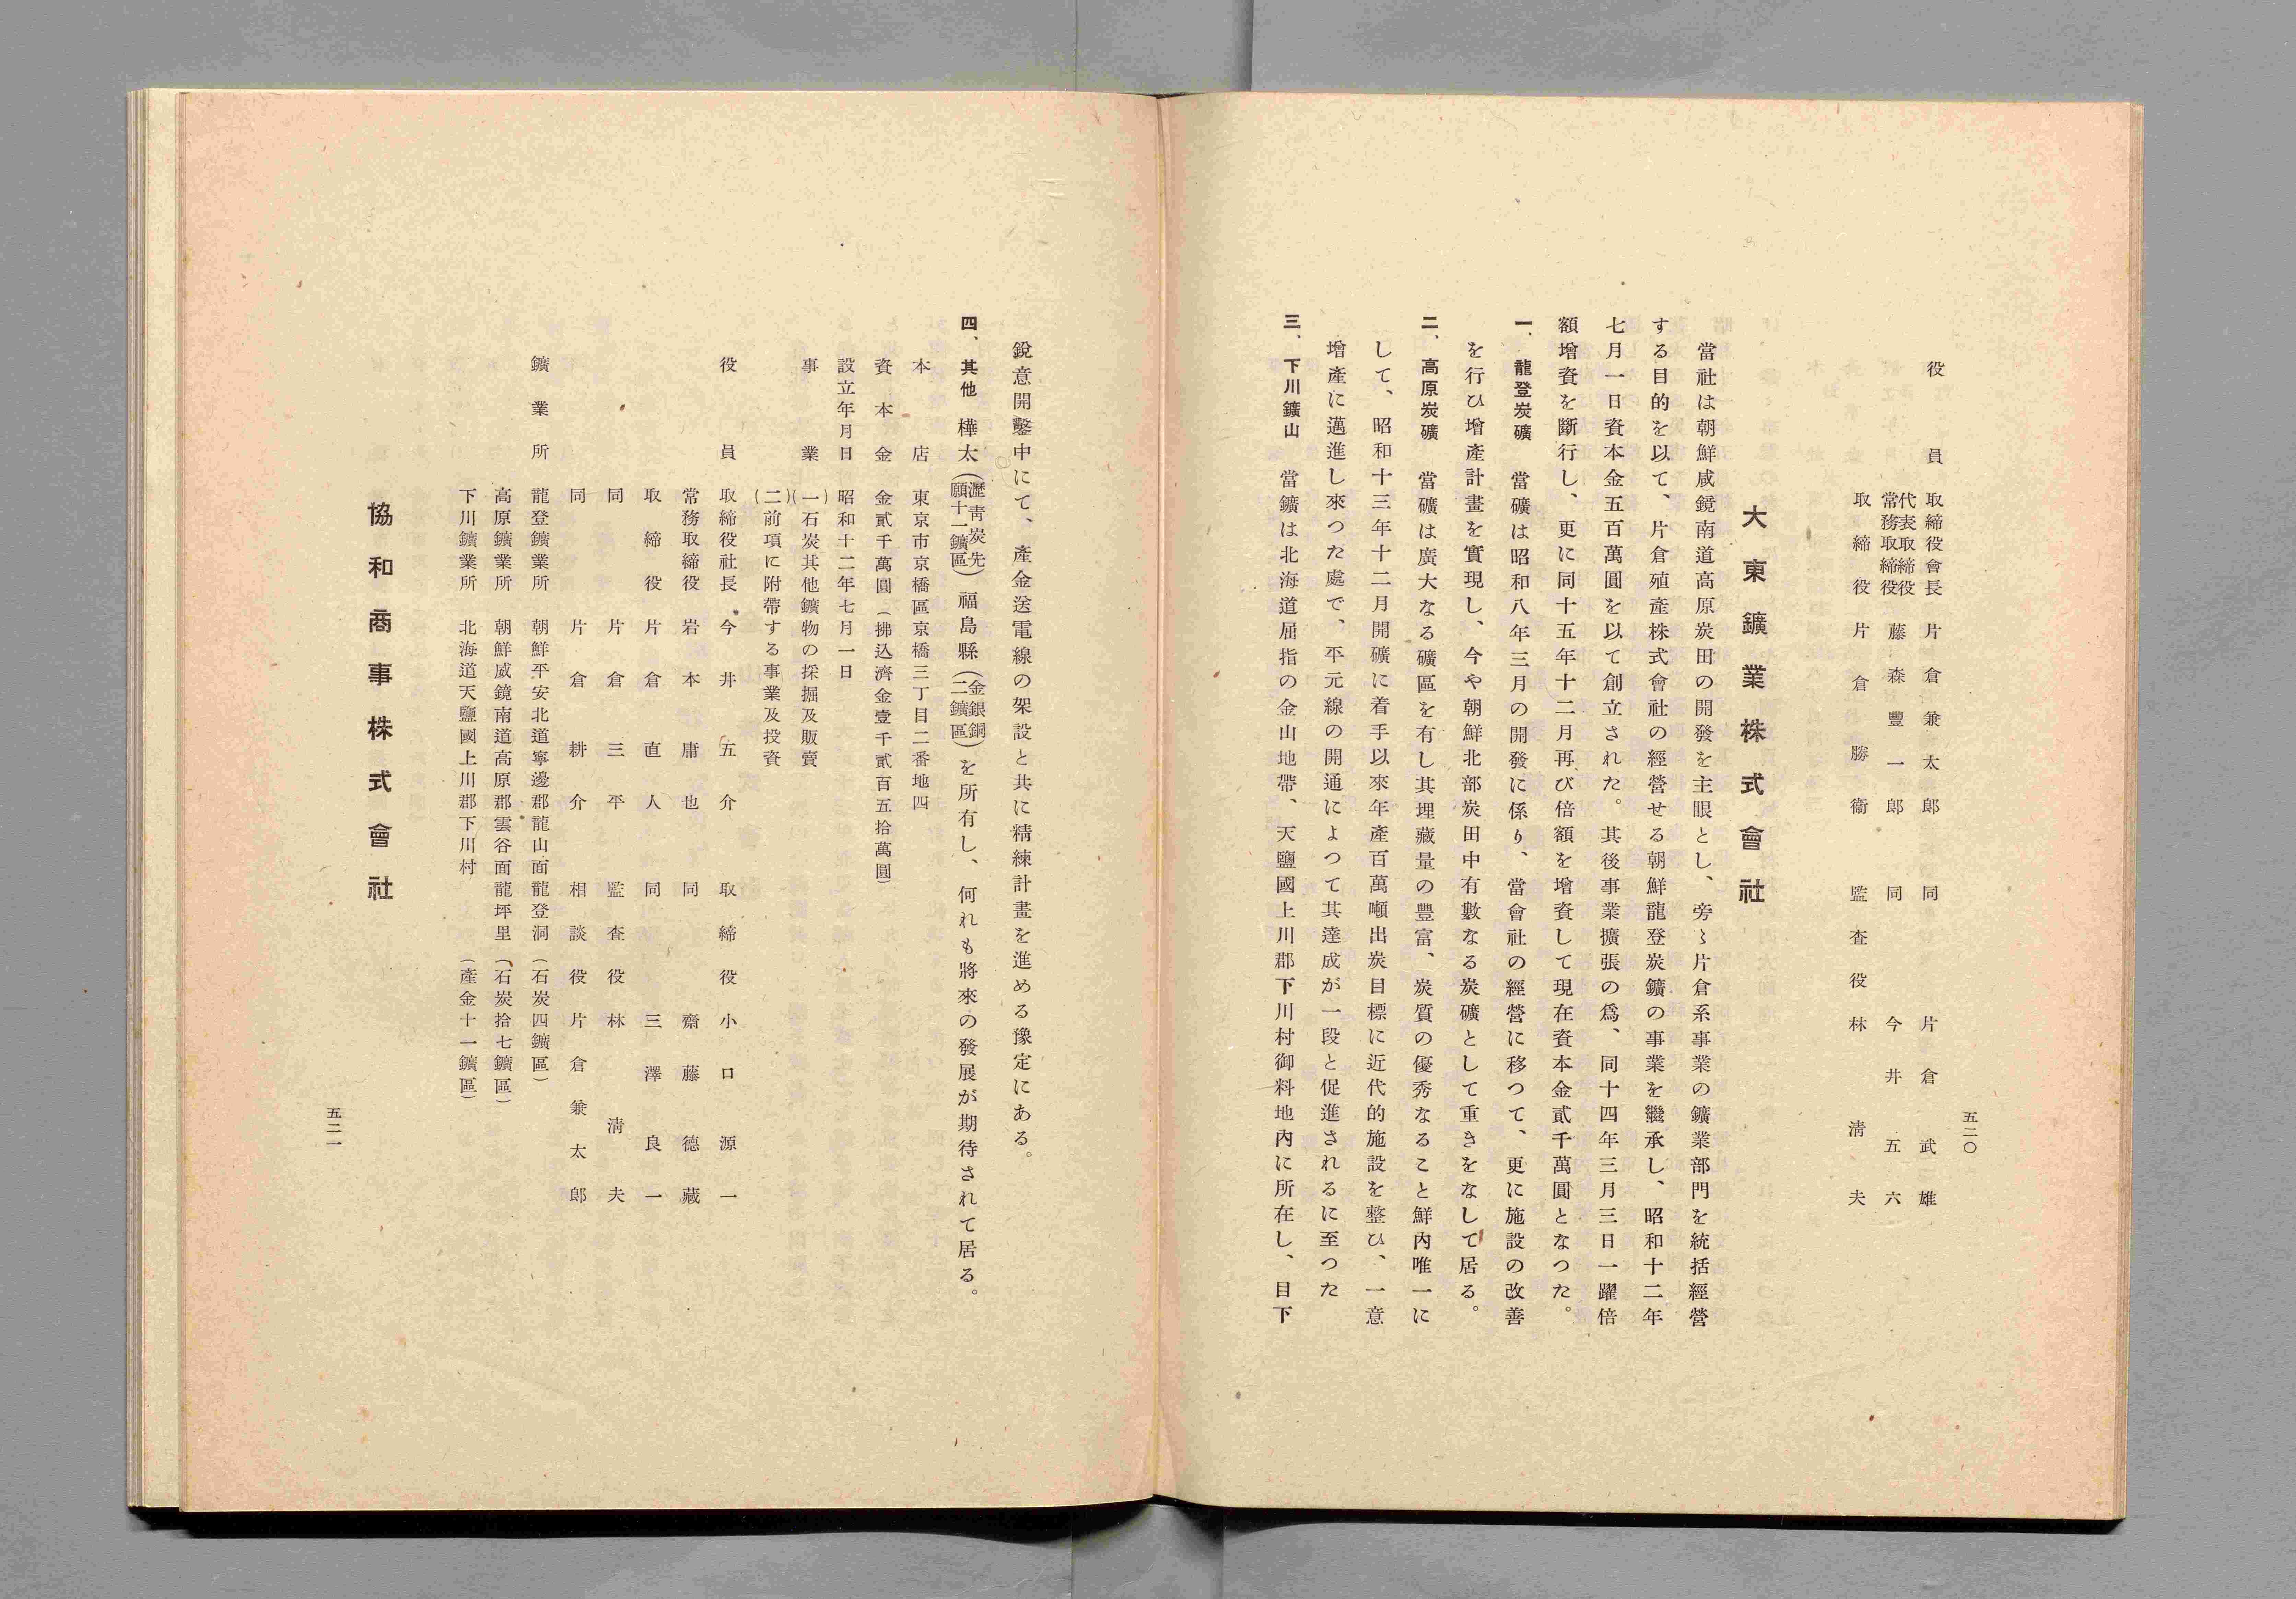 五二〇
役員 取締役會長 片倉兼太郎 同 片倉武雄
代表取締役
常務取締役 藤森豐一郎 同 今井五六
取締役 片倉勝衞 監査役 林清夫
大東鑛業株式會社
當社は朝鮮咸鏡南道高原炭田の開發を主眼とし、旁〻片倉系事業の鑛業部門を統括經營
する目的を以て、片倉殖產株式會社の經營せる朝鮮龍登炭鑛の事業を繼承し、昭和十二年
七月一日資本金五百萬圓を以て創立された。其後事業擴張の爲、同十四年三月三日一躍倍
額增資を斷行し、更に同十五年十二月再び倍額を增資して現在資本金貳千萬圓となつた。
一、龍登炭礦 當礦は昭和八年三月の開發に係り、當會社の經營に移つて、更に施設の改善
を行ひ增產計畫を實現し、今や朝鮮北部炭田中有數なる炭礦として重きをなして居る。
二、高原炭礦 當礦は廣大なる礦區を有し其埋藏量の豐富、炭質の優秀なること鮮內唯一に
して、昭和十三年十二月開礦に着手以來年產百萬噸出炭目標に近代的施設を整ひ、一意
增產に邁進し來つた處で、平元線の開通によつて其達成が一段と促進されるに至つた
三、下川鑛山 當鑛は北海道屈指の金山地帶、天鹽國上川郡下川村御料地內に所在し、目下
銳意開鑿中にて、產金送電線の架設と共に精練計畫を進める豫定にある。
四、其他 樺太(瀝靑炭先願十一鑛區)福島縣(金銀銅二鑛區)を所有し、何れも將來の發展が期待されて居る。
本店 東京市京橋區京橋三丁目二番地四
資本金 金貳千萬圓(拂込濟金壹千貳百五拾萬圓)
設立年月日 昭和十二年七月一日
事業 (一)石炭其他鑛物の採掘及販賣
(二)前項に附帶する事業及投資
役員 取締役社長 今井五介 取締役 小口源一
常務取締役 岩本庸也 同 齋藤德藏
取締役 片倉直人 同 三澤良一
同 片倉三平 監査役 林清夫
同 片倉耕介 相談役 片倉兼太郎
鑛業所 龍登鑛業所 朝鮮平安北道寧邊郡龍山面龍登洞(石炭四鑛區)
高原鑛業所 朝鮮咸鏡南道高原郡雲谷面龍坪里(石炭拾七鑛區)
下川鑛業所 北海道天鹽國上川郡下川村(產金十一鑛區)
協和商事株式會社
五二一